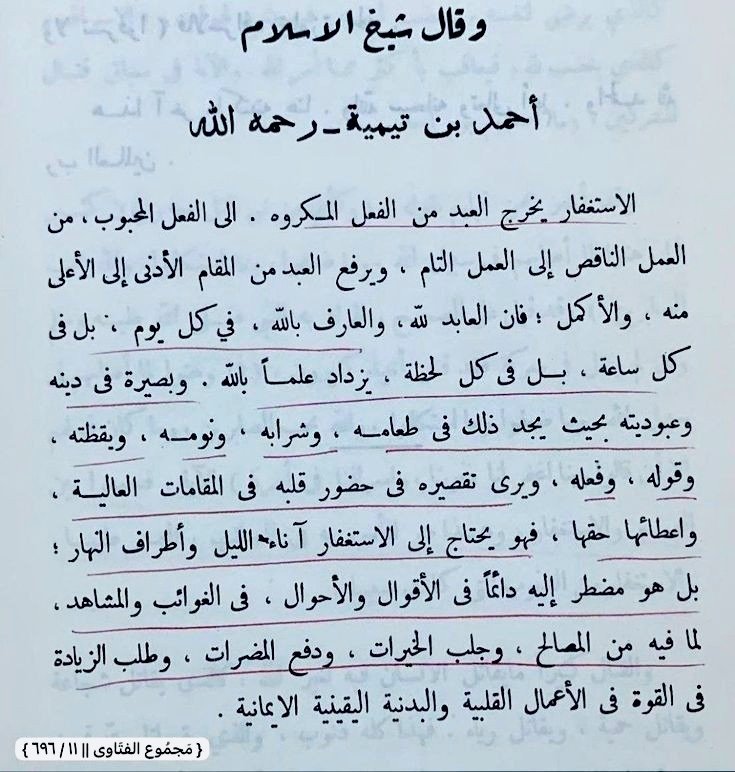 وقال شيخ الاسلام
أحمد بن تيمية ـ رحمه الله
الاستغفار يخرج العبد من الفعل المـكروه . الى الفعل المحبوب ، من
العمل الناقص إلى العمل التام ، ويرفع العبد من المقام الأدنى إلى الأعلى
منه ، والأكمل ؛ فان العابد لله ، والعارف بالله ، في كل يوم ، بل فى
كل ساعة ، بـل فى كل لحظة ، يزداد علمـاً بالله . وبصيرة فى دينه
وعبوديته بحيث يجد ذلك فى طعامـه ، وشرابه ، ونومـه ، ويقظته ،
وقوله ، وفعله ، ويرى تقصيره فى حضور قلبه فى المقامات العاليـة ،
واعطائها حقها ، فهو يحتاج إلى الاستغفار آناء الليل وأطراف النهار ؛
بل هو مضطر إليه دائماً فى الأقوال والأحوال ، فى الغوائب والمشاهد ،
لما فيه من المصالح ، وجلب الخيرات ، ودفع المضرات ، وطلب الزيادة
فى القوة فى الأعمال القلبية والبدنية اليقينية الايمانية .
{ مَجمُوع الفتَاوى || ١١ / ٦٩٦ }